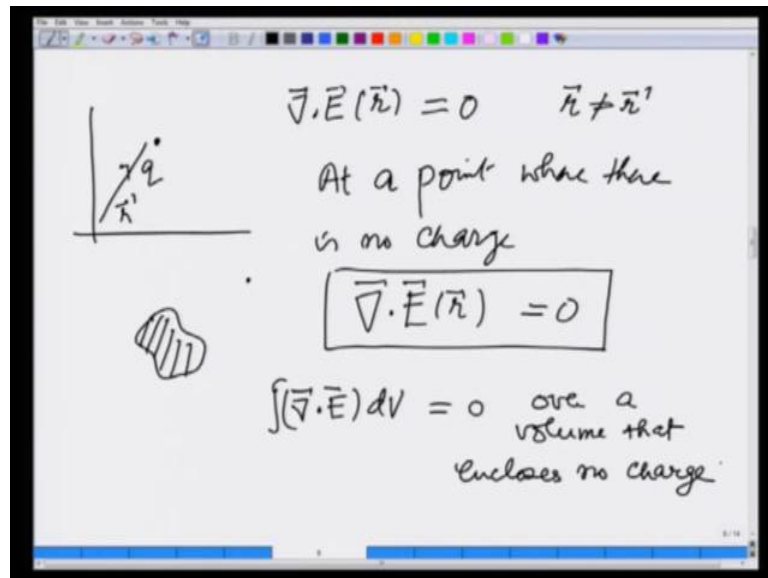 File Edit View Insert Actions Tools Help
∇⃗.E⃗(r⃗) = 0    r⃗ ≠ r⃗'
q
r⃗'
At a point where there
is no charge
∇⃗.E⃗(r⃗) = 0
∫(∇⃗.E⃗)dV = 0 over a
volume that
encloses no charge